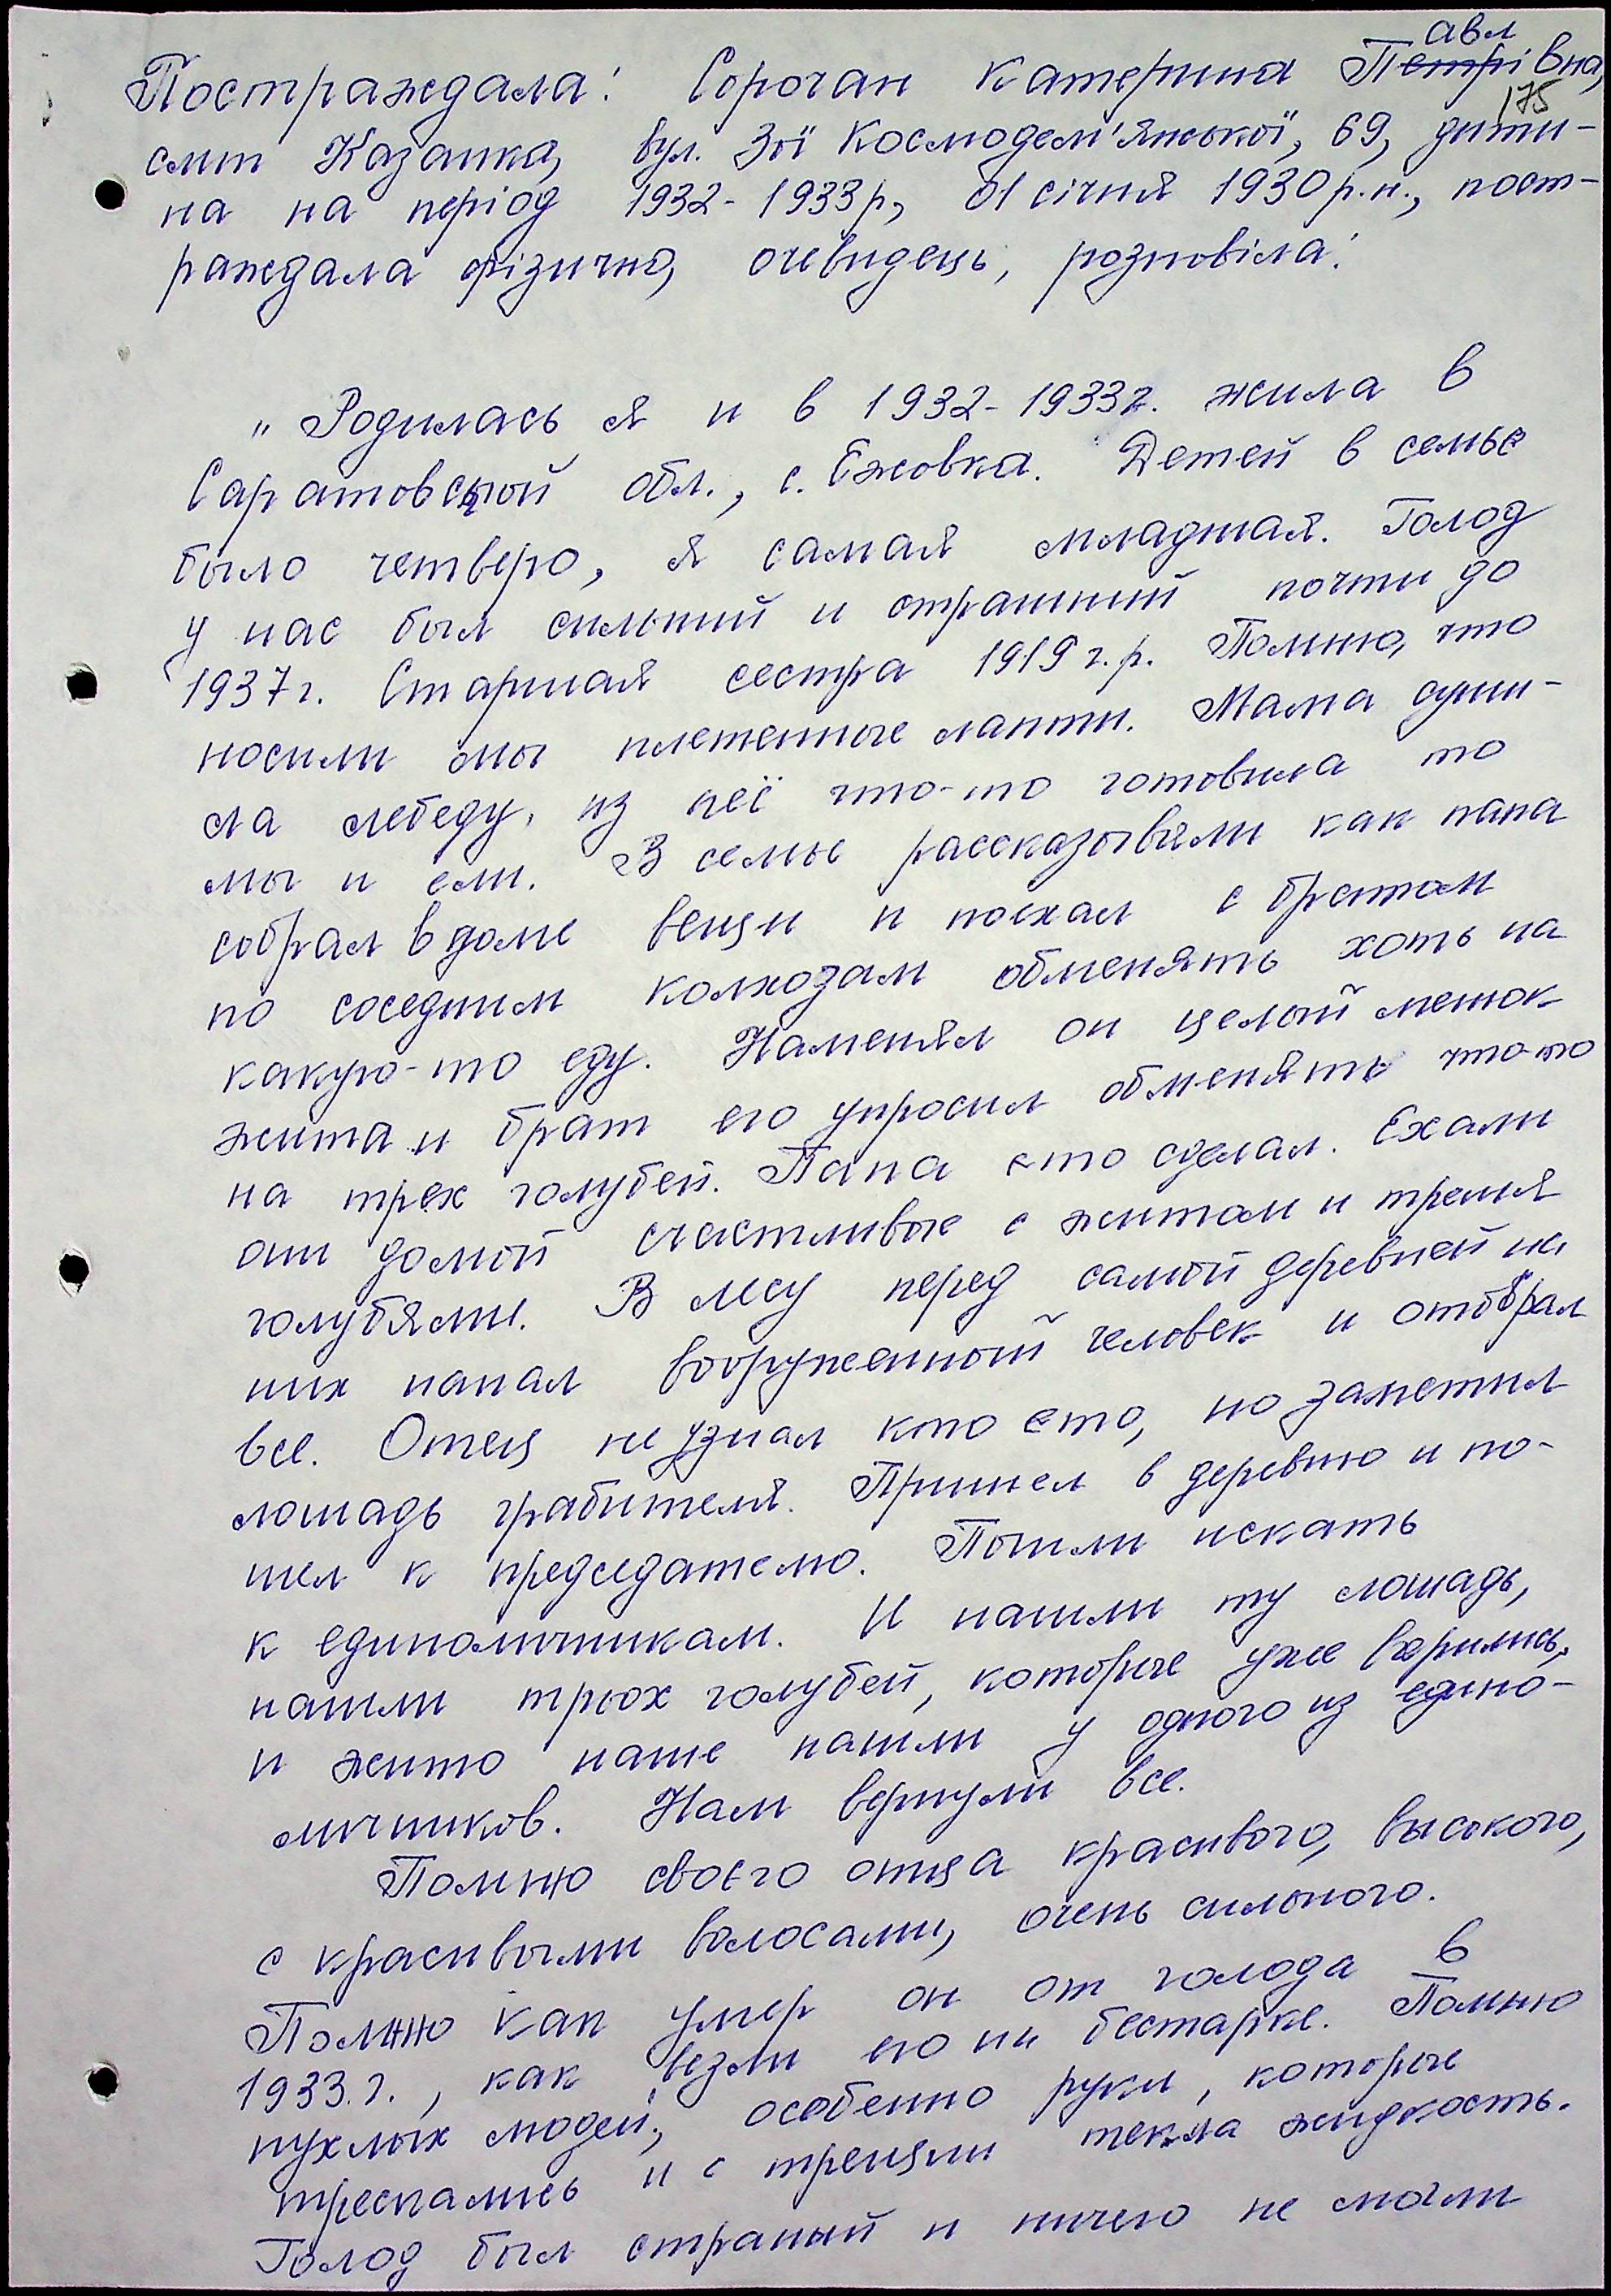 Постраждала: Сорочан Катерина Петрівна,
авл
175
смт Казанка, вул. Зої Космодем'янської, 69, дити-
на на період 1932-1933р, 01 січня 1930р.н., пост-
раждала фізично, очевидець, розповіла:
„Родилась я и в 1932-1933г. жила в
Саратовской обл., с. Ежовка. Детей в семье
было четверо, я самая младшая. Голод
у нас был сильний и страшний почти до
1937г. Старшая сестра 1919 г.р. Помню, что
носили мы плетенные лапти. Мама суши-
ла лебеду, из неё что-то готовила то
мы и ели. В семье рассказывали как папа
собрал в доме вещи и поехал с братом
по соседним колхозам обменять хоть на
какую-то еду. Наменял он целый мешок
жита и брат его упросил обменять что-то
на трех голубей. Папа ето сделал. Ехали
они домой счастливые с житом и тремя
голубями. В лесу перед самой деревней на
них напал вооруженный человек и отобрал
все. Отец не узнал кто ето, но заметил
лошадь грабителя. Пришел в деревню и по-
шел к председателю. Пошли искать
к единоличникам. И нашли ту лошадь,
нашли трьох голубей, которые уже варились,
и жито наше нашли у одного из едино-
личников. Нам вернули все.
Помню своего отца красивого, высокого,
с красивыми волосами, очень сильного.
Помню как умер он от голода в
1933.г., как везли его на бестарке. Помню
пухлых людей, особенно руки, которые
трескались и с трещин текла жидкость.
Голод был страный и ничего не могли